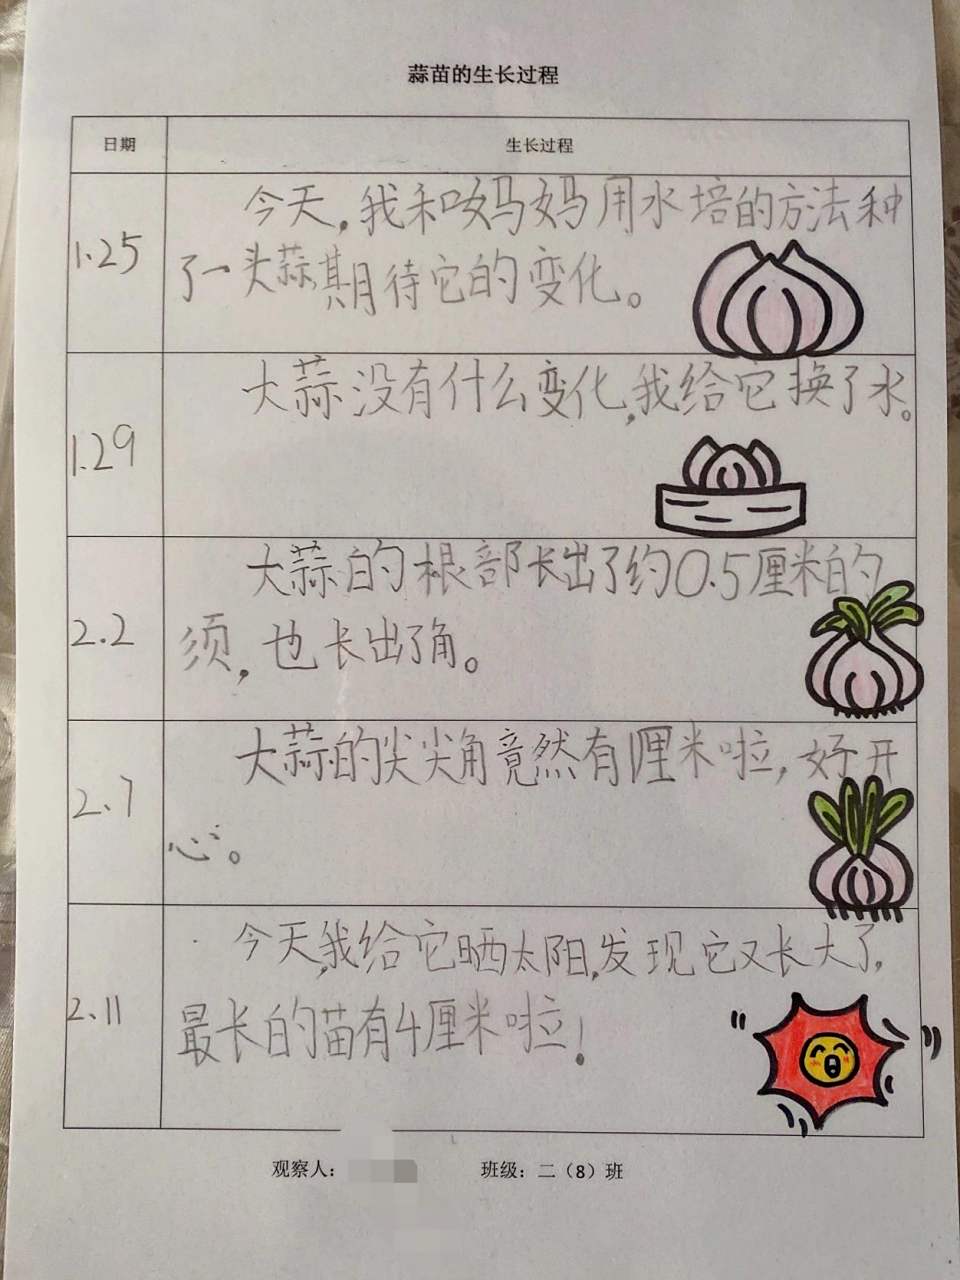 蒜苗的生长过程
日期 生长过程
1.25
今天,我和妈妈用水培的方法种
了一头蒜期待它的变化。
1.29
大蒜没有什么变化,我给它换了水。
2.2
大蒜的根部长出了约0.5厘米的
须,也长出了角。
2.7
大蒜的尖尖角竟然有1厘米啦,好开
心。
2.11
今天,我给它晒太阳,发现它又长大了,
最长的苗有4厘米啦!
观察人: 班级:二(8)班